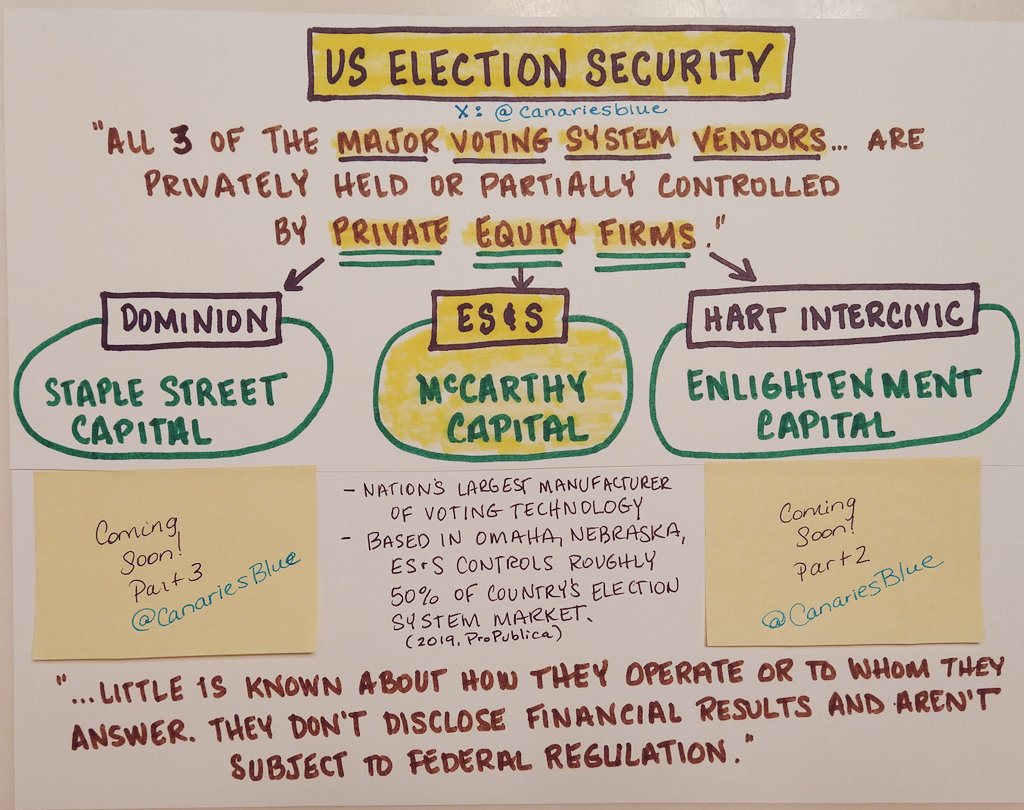 US ELECTION SECURITY
X: @canariesblue
"ALL 3 OF THE MAJOR VOTING SYSTEM VENDORS... ARE
PRIVATELY HELD OR PARTIALLY CONTROLLED
BY PRIVATE EQUITY FIRMS."
DOMINION
STAPLE STREET
CAPITAL
ES&S
McCARTHY
CAPITAL
HART INTERCIVIC
ENLIGHTENMENT
CAPITAL
Coming
Soon!
Part 3
@CanariesBlue
- NATION'S LARGEST MANUFACTURER
OF VOTING TECHNOLOGY
- BASED IN OMAHA, NEBRASKA,
ES&S CONTROLS ROUGHLY
50% OF COUNTRY'S ELECTION
SYSTEM MARKET.
(2019, ProPublica)
Coming
Soon!
Part 2
@CanariesBlue
"...LITTLE IS KNOWN ABOUT HOW THEY OPERATE OR TO WHOM THEY
ANSWER. THEY DON'T DISCLOSE FINANCIAL RESULTS AND AREN'T
SUBJECT TO FEDERAL REGULATION."